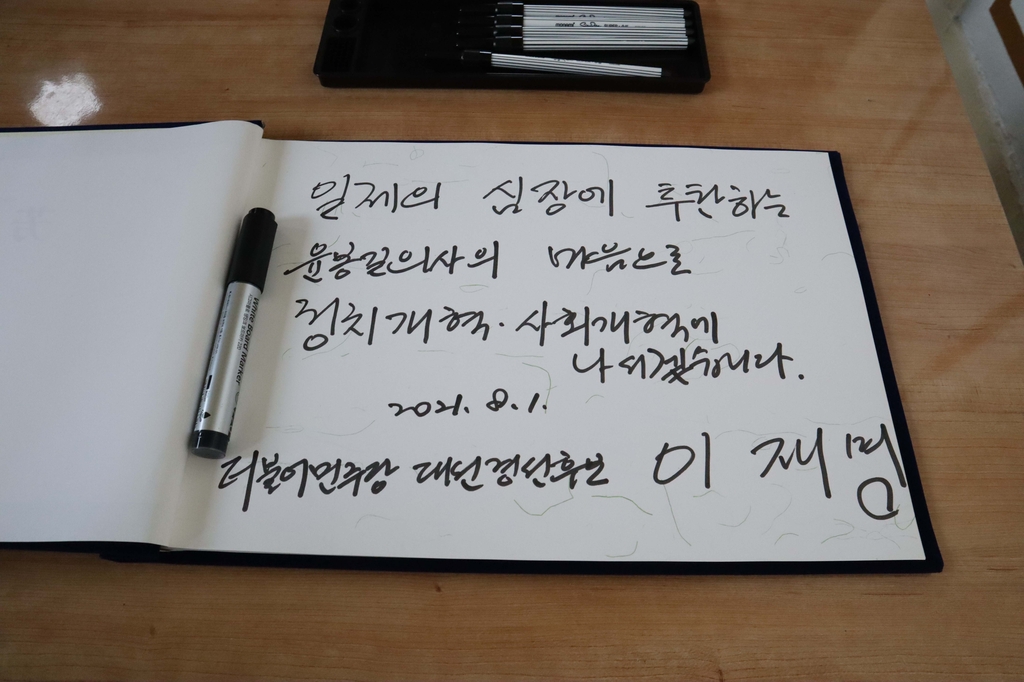 일제의 심장에 투탄하는
윤봉길의사의 마음으로
정치개혁·사회개혁에
나서겠습니다.
2021. 8. 1.
더불어민주당 대선경선후보 이재명
White Board Marker